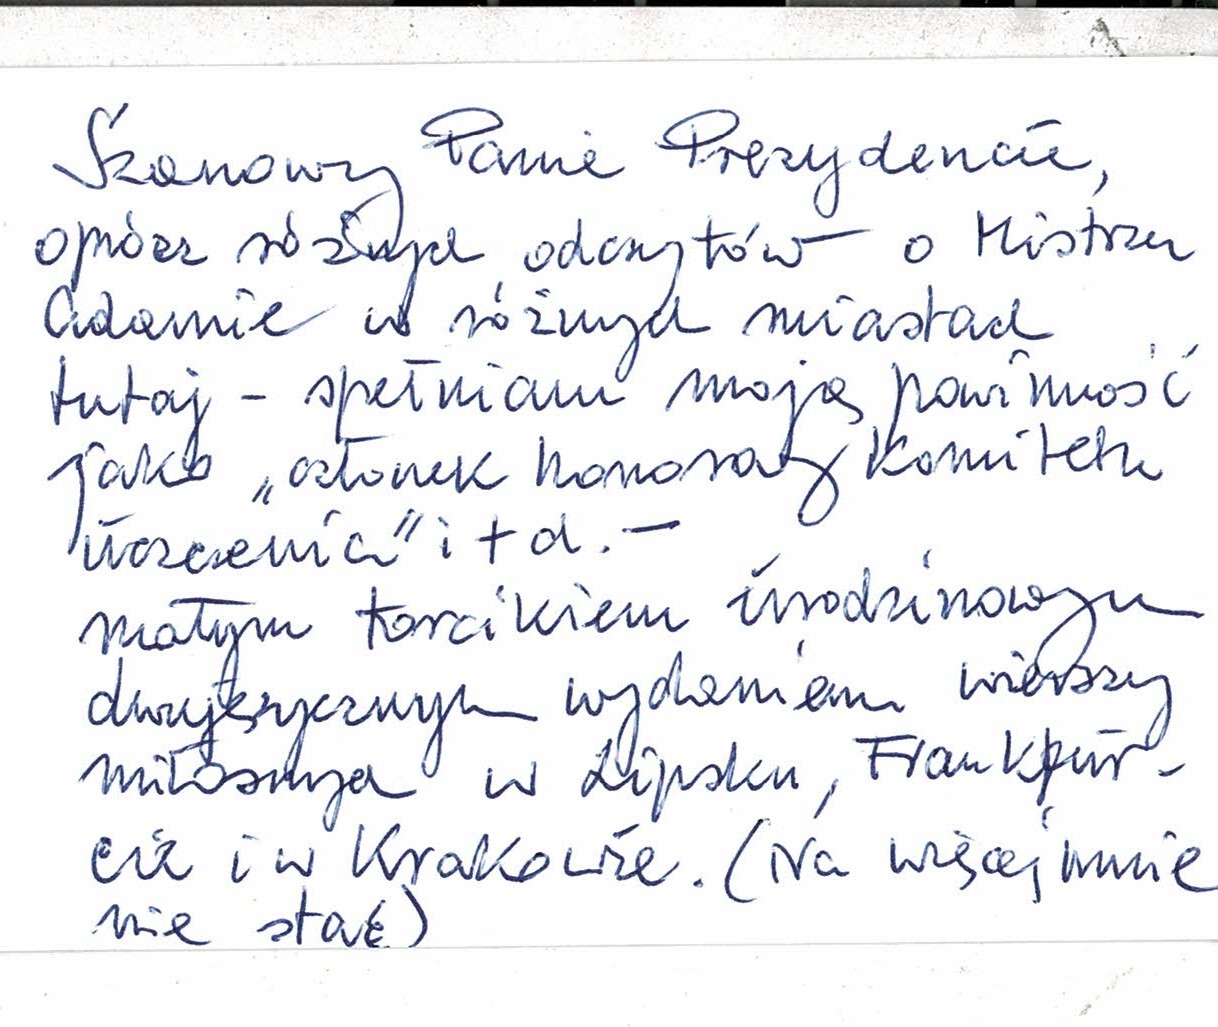 Szanowny Panie Prezydencie,
oprócz różnych odczytów o Mistrzu
Adamie w różnych miastach
tutaj – spełniam moją powinność
jako „członek honorowy Komitetu
Uczczenia" i t d. –
małym torcikiem urodzinowym
dwujęzycznym wydaniem wierszy
miłosnych w Lipsku, Frankfur-
cie i w Krakowie. (Na więcej mnie
nie stać)